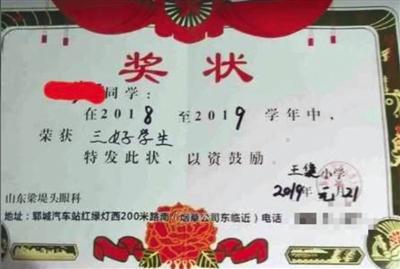 奖状
同学:
在2018至2019学年中,
荣获三好学生
特发此状,以资鼓励。
王堤小学
2019年元月21
山东梁堤头眼科
地址:郓城汽车站红绿灯西200米路南(烟草公司东临近)电话